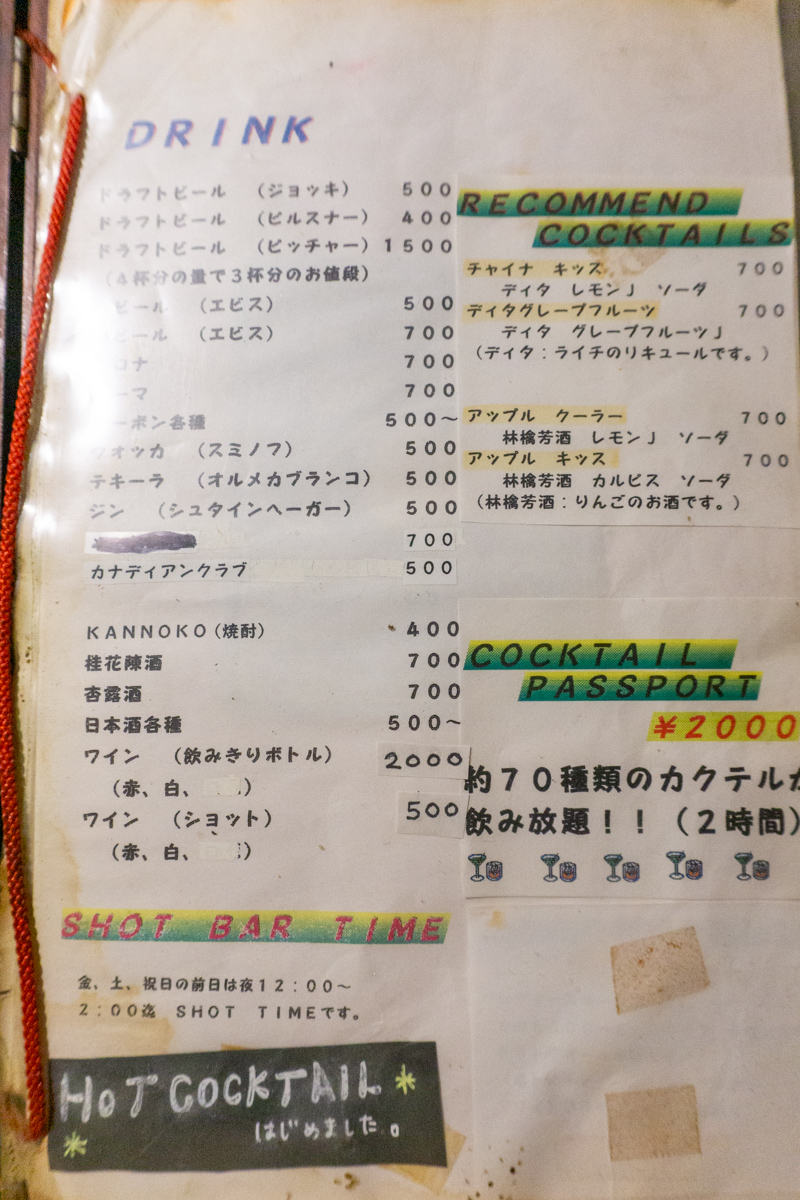 DRINK
ドラフトビール （ジョッキ） 500
ドラフトビール （ピルスナー） 400
ドラフトビール （ピッチャー） 1500
（4杯分の量で3杯分のお値段）
ビール （エビス） 500
ビール （エビス） 700
ロナ 700
ーマ 700
ーボン各種 500～
ウオッカ （スミノフ） 500
テキーラ （オルメカブランコ） 500
ジン （シュタインヘーガー） 500
700
カナディアンクラブ 500
KANNOKO（焼酎） 400
桂花陳酒 700
杏露酒 700
日本酒各種 500～
ワイン （飲みきりボトル） 2000
（赤、白、 ）
ワイン （ショット） 500
（赤、白、 ）
SHOT BAR TIME
金、土、祝日の前日は夜12：00～
2：00迄 SHOT TIMEです。
HOT COCKTAIL
はじめました。
RECOMMEND
COCKTAILS
チャイナ キッス 700
ディタ レモンJ ソーダ
ディタグレープフルーツ 700
ディタ グレープフルーツJ
（ディタ：ライチのリキュールです。）
アップル クーラー 700
林檎芳酒 レモンJ ソーダ
アップル キッス 700
林檎芳酒 カルピス ソーダ
（林檎芳酒：りんごのお酒です。）
COCKTAIL
PASSPORT
￥2000
約70種類のカクテルが
飲み放題！！（2時間）